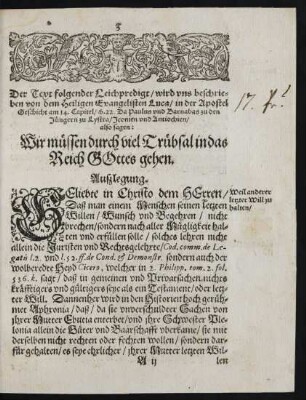 3
Der Text folgender Leichpredigt / wird vns beschrie-
ben von dem Heiligen Evangelisten Luca / in der Apostel
Geschicht am 14. Capitel / v. 22. Da Paulus vnd Barnabas zu den
Jüngern zu Lystra / Iconien vnd Antiochien /
also sagen:
Wir müssen durch viel Trübsal in das
Reich GOttes gehen.
Außlegung.
GEliebte in Christo dem HErren /
Daß man einem Menschen seinen letzten
Willen / Wunsch vnd Begehren / nicht
brechen / sondern nach aller Mögligkeit hal-
ten vnd erfüllen solle / solches lehren nicht
allein die Juristen vnd Rechtsgelehrte / Cod. comm. de Le-
gatis l. 2. vnd l. 5. ff. de Cond. & Demonstr. sondern auch der
wolberedte Heyd Cicero, welcher in 2. Philipp. tom. 2. fol.
sagt / daß in gemeinen vnd Privatsachen nichts
kräfftigers vnd gültigers seye als ein Testament / oder letz-
ter Will. Dannenher wird in den Historien hoch gerüh-
met Aphronia / daß / da sie vnverschuldter Sachen von
jhrer Mutter Ebutia enterbet / vnd jhre Schwester Ple-
tonia allein die Güter vnd Baarschafft vberkame / sie mit
derselben nicht rechten oder fechten wollen / sondern dar-
für gehalten / es seye ehrlicher / jhrer Mutter letzten Wil-
A ij
len
Weil anderer
letzter Will zu
halten /